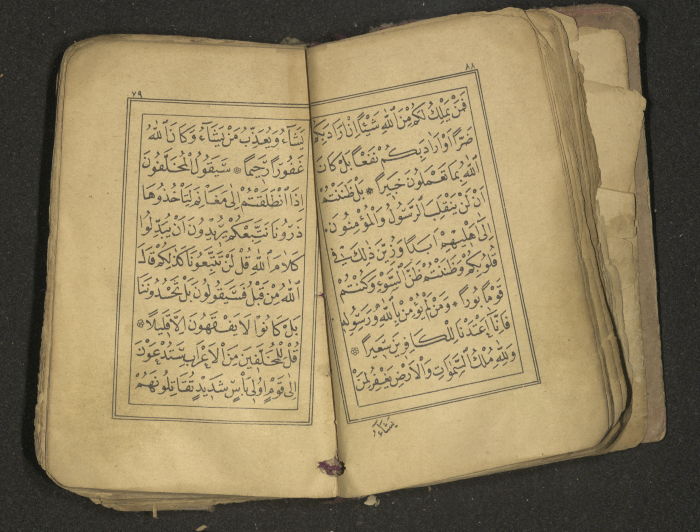 ٨٨
فَمَنْ يَمْلِكُ لَكُمْ مِنَ اللّٰهِ شَيْئًا اِنْ اَرَادَ بِكُمْ
ضَرًّا اَوْ اَرَادَ بِكُمْ نَفْعًا بَلْ كَانَ
اللّٰهُ بِمَا تَعْمَلُونَ خَبِيرًا ۞ بَلْ ظَنَنْتُمْ
اَنْ لَنْ يَنْقَلِبَ الرَّسُولُ وَالْمُؤْمِنُونَ
اِلٰى اَهْلِيهِمْ اَبَدًا وَزُيِّنَ ذٰلِكَ فِى
قُلُوبِكُمْ وَظَنَنْتُمْ ظَنَّ السَّوْءِ وَكُنْتُمْ
قَوْمًا بُورًا ۞ وَمَنْ لَمْ يُؤْمِنْ بِاللّٰهِ وَرَسُولِهِ
فَاِنَّا اَعْتَدْنَا لِلْكَافِرِينَ سَعِيرًا ۞
وَلِلّٰهِ مُلْكُ السَّمٰوَاتِ وَالْاَرْضِ يَغْفِرُ لِمَنْ
يَشَاءُ
٧٩
يَشَاءُ وَيُعَذِّبُ مَنْ يَشَاءُ وَكَانَ اللّٰهُ
غَفُورًا رَحِيمًا ۞ سَيَقُولُ الْمُخَلَّفُونَ
اِذَا انْطَلَقْتُمْ اِلٰى مَغَانِمَ لِتَأْخُذُوهَا
ذَرُونَا نَتَّبِعْكُمْ يُرِيدُونَ اَنْ يُبَدِّلُوا
كَلَامَ اللّٰهِ قُلْ لَنْ تَتَّبِعُونَا كَذٰلِكُمْ قَالَ
اللّٰهُ مِنْ قَبْلُ فَسَيَقُولُونَ بَلْ تَحْسُدُونَنَا
بَلْ كَانُوا لَا يَفْقَهُونَ اِلَّا قَلِيلًا ۞
قُلْ لِلْمُخَلَّفِينَ مِنَ الْاَعْرَابِ سَتُدْعَوْنَ
اِلٰى قَوْمٍ اُولِى بَأْسٍ شَدِيدٍ تُقَاتِلُونَهُمْ